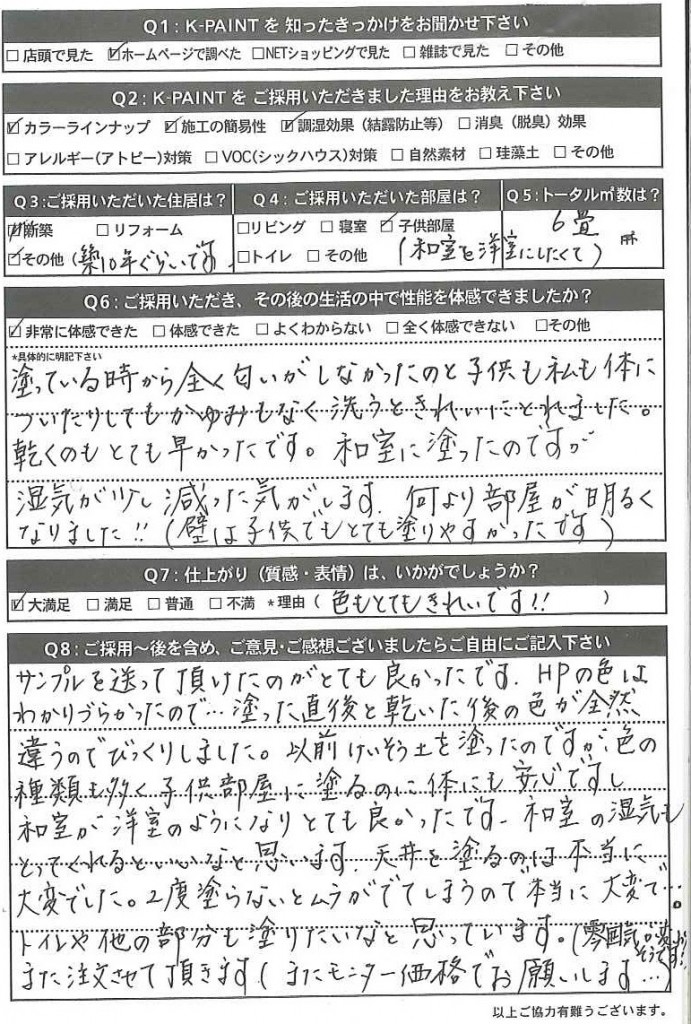 Q1：K-PAINTを 知ったきっかけをお聞かせ下さい
□店頭で見た ☑ホームページで調べた □NETショッピングで見た □雑誌で見た □その他
Q2：K-PAINTを ご採用いただきました理由をお教え下さい
☑カラーラインナップ ☑施工の簡易性 ☑調湿効果（結露防止等） □消臭（脱臭）効果
□アレルギー(アトピー)対策 □VOC(シックハウス)対策 □自然素材 □珪藻土 □その他
Q3：ご採用いただいた住居は？ Q4：ご採用いただいた部屋は？ Q5：トータル㎡数は？
新築 □リフォーム □リビング □寝室 ☑子供部屋 6畳 ㎡
☑その他（築10年ぐらいです. □トイレ □その他 (和室を洋室にしたくて)
Q6：ご採用いただき、その後の生活の中で性能を体感できましたか？
☑非常に体感できた □体感できた □よくわからない □全く体感できない □その他
*具体的に明記下さい
塗っている時から全く匂いがしなかったのと子供も私も体に
ついたりしてもかゆみもなく洗うときれいにとれました。
乾くのもとても早かったです。和室に塗ったのですが
湿気が少し減った気がします. 何より部屋が明るく
なりました!!（壁は子供でもとても塗りやすかったです）
Q7：仕上がり（質感・表情）は、いかがでしょうか？
☑大満足 □満足 □普通 □不満 *理由（ 色もとてもきれいです!! ）
Q8：ご採用〜後を含め、ご意見・ご感想ございましたらご自由にご記入下さい
サンプルを送って頂けたのがとても良かったです. HPの色は
わかりづらかったので…塗った直後と乾いた後の色が全然
違うのでびっくりしました。以前けいそう土を塗ったのですが色の
種類も多く子供部屋に塗るのに体にも安心ですし
和室が洋室のようになりとても良かったです. 和室の湿気も
とってくれるといいなと思います. 天井を塗るのは本当に
大変でした。2度塗らないとムラがでてしまうので本当に大変で…。
トイレや他の部分も塗りたいなと思っています。(雰囲気が変わりそうです!!
また注文させて頂きます(またモニター価格でお願いします…)
以上ご協力有難うございます。